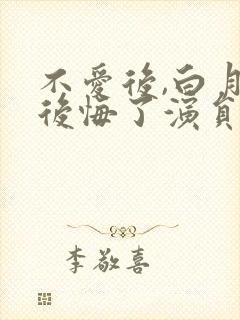 不愛後,白月
後悔了演員
李敬喜